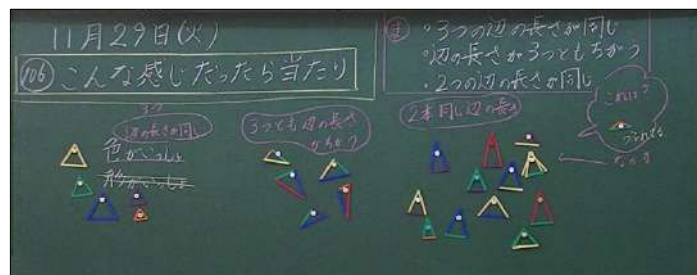 11月29日(火)
106 こんな感じだったら当たり
ま
・3つの辺の長さが同じ
・辺の長さが3つともちがう
・2つの辺の長さが同じ
3つ
辺の長さが同じ
色がいっしょ
形がいっしょ
3つとも辺の長さ
がちがう
2本同じ辺の長さ
これは?